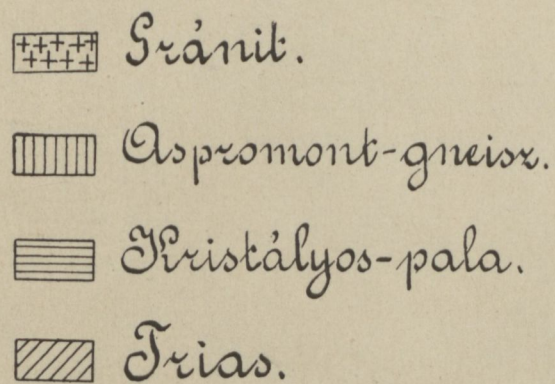 Gránit.
Aspromont-gneisz.
Kristályos-pala.
Trias.